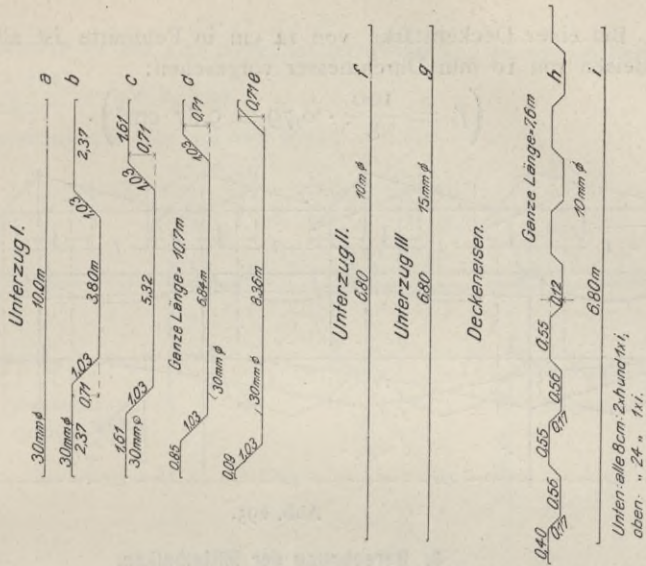 Unterzug I.
30mm ϕ 10.0m a
30mm ϕ 2,37 0,71 1,03 3,80m 1,03 2,37 b
1,61 30mm ϕ 1,03 5,32 1,03 0,71 1,61 c
Ganze Länge = 10.7m
0,85 1,03 30mm ϕ 6,84m 1,03 0,71 d
0,09 1,03 30mm ϕ 8,36m 0,71 e
Unterzug II.
6.80 10m ϕ
Unterzug III
6.80 15mm ϕ g
Deckeneisen.
Ganze Länge = 7.6m
0.40 0,17 0,56 0,55 0,17 0,56 0.55 0,12 h
6.80m 10mm ϕ i
Unten: alle 8cm: 2xh und 1xi,
oben: " 24 " 1xi.